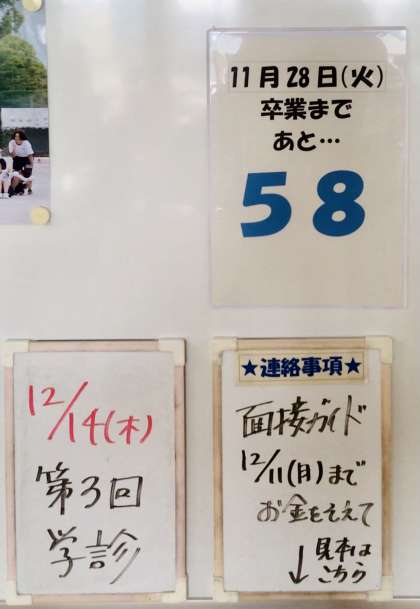 11月28日(火)
卒業まで
あと…
58
12/14(木)
第3回
学診
★連絡事項★
面接ガイド
12/11(月)まで
お金をそえて
↓見本は
こちら